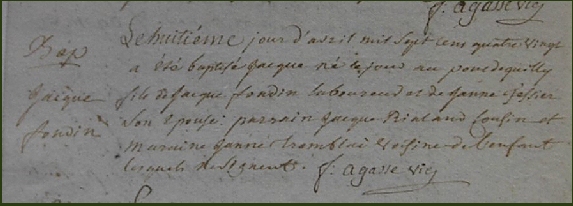 f. agasse vic
Bap
Jacque
fondin
Le huitiéme jour d'avril mil sept cens quatre vingt
a été baptisé Jacque né le jour au pont de quilly
fils de Jacque fondin laboureur et de Janne Tessier
son epouse: parrain Jacque Rialand Cousin et
maraine Janne Tremblai voisine de l'enfant
lesquels ne signent. f: agasse vic